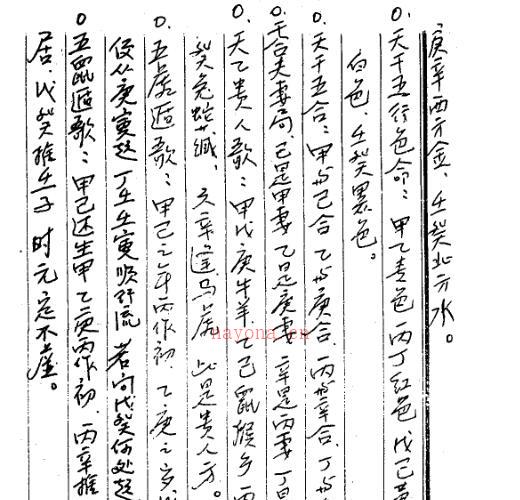 庚辛西方金、壬癸北方水。
0、天干五行色命：甲乙青色 丙丁红色 戊己黄
白色、壬癸黑色。
0、天干五合：甲与己合 乙与庚合、丙与辛合、丁与
0、五合夫妻局、己是甲妻 乙是庚妻 辛是丙妻 丁是
0、天乙贵人歌：甲戊庚牛羊、乙己鼠猴乡 丙
癸兔蛇藏、六辛逢马虎 此是贵人方。
0、五虎遁歌：甲己之年丙作初、乙庚之岁
庚寅起 丁壬壬寅顺行流 若问戊癸何处起
0 五鼠遁歌：甲己还生甲 乙庚丙作初、丙辛推
居、戊癸推壬子 时元定不虚。
nayona.cn